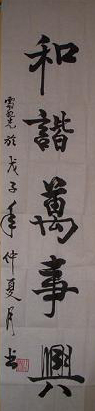 和諧萬事興
於戊子年仲夏月書